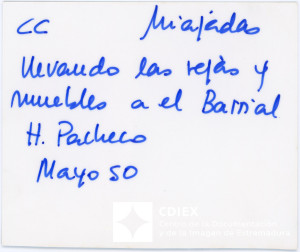 CC Miajadas
llevando las rejas y
muebles a el Barrial
H. Pacheco
Mayo 50
CDIEX